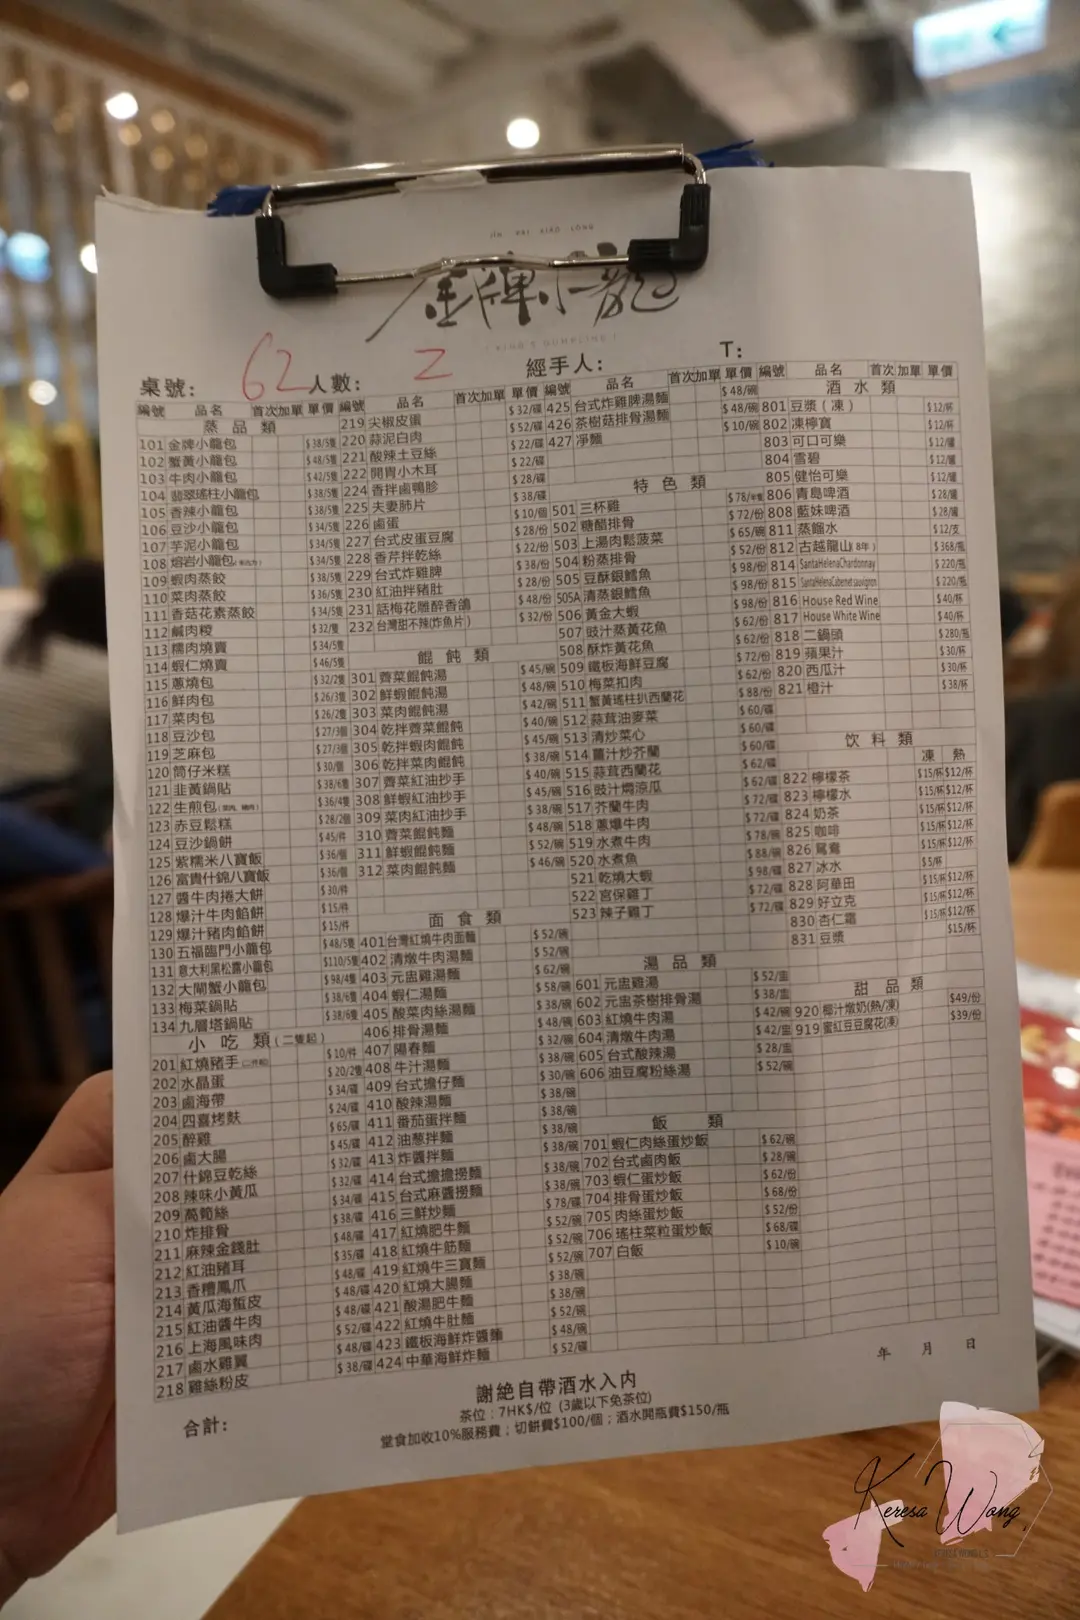 JIN PAI XIAO LONG
金牌小龍
KING'S DUMPLING
桌號: 62 人數: 2 經手人: T:
編號 品名 首次 加單 單價
蒸品類
101 金牌小龍包 $38/5隻
102 蟹黃小龍包 $48/5隻
103 牛肉小龍包 $42/5隻
104 翡翠瑤柱小龍包 $38/5隻
105 香辣小龍包 $38/5隻
106 豆沙小龍包 $34/5隻
107 芋泥小龍包 $34/5隻
108 熔岩小龍包 $34/5隻
109 蝦肉蒸餃 $38/5隻
110 菜肉蒸餃 $36/5隻
111 香菇花素蒸餃 $34/5隻
112 鹹肉糉 $32/隻
113 糯肉燒賣 $34/5隻
114 蝦仁燒賣 $46/5隻
115 蔥燒包 $32/2隻
116 鮮肉包 $26/3隻
117 菜肉包 $26/2隻
118 豆沙包 $27/3個
119 芝麻包 $27/3個
120 筒仔米糕 $30/個
121 韭黃鍋貼 $38/6隻
122 生煎包 $36/4隻
123 赤豆鬆糕 $28/2個
124 豆沙鍋餅 $45/件
125 紫糯米八寶飯 $36/個
126 富貴什錦八寶飯 $36/個
127 醬牛肉捲大餅 $30/件
128 爆汁牛肉餡餅 $15/件
129 爆汁豬肉餡餅 $15/件
130 五福臨門小龍包 $48/5隻
131 意大利黑松露小龍包 $110/5隻
132 大閘蟹小龍包 $98/4隻
133 梅菜鍋貼 $38/6隻
134 九層塔鍋貼 $38/6隻
小吃類(二隻起)
201 紅燒豬手 $10/件
202 水晶蛋 $20/2隻
203 鹵海帶 $34/碟
204 四喜烤麩 $24/碟
205 醉雞 $65/碟
206 鹵大腸 $45/碟
207 什錦豆乾絲 $32/碟
208 辣味小黃瓜 $32/碟
209 萵筍絲 $34/碟
210 炸排骨 $38/碟
211 麻辣金錢肚 $48/碟
212 紅油豬耳 $35/碟
213 香糟鳳爪 $48/碟
214 黃瓜海蜇皮 $48/碟
215 紅油醬牛肉 $48/碟
216 上海風味肉 $52/碟
217 鹵水雞翼 $48/碟
218 雞絲粉皮 $38/碟
編號 品名 首次 加單 單價
219 尖椒皮蛋 $32/碟
220 蒜泥白肉 $52/碟
221 酸辣土豆絲 $22/碟
222 開胃小木耳 $22/碟
224 香拌鹵鴨胗 $28/碟
225 夫妻肺片 $38/碟
226 鹵蛋 $10/個
227 台式皮蛋豆腐 $28/份
228 香芹拌乾絲 $22/份
229 台式炸雞脾 $38/份
230 紅油拌豬肚 $28/份
231 話梅花雕醉香鴿 $48/份
232 台灣甜不辣(炸魚片) $32/份
餛飩類
301 薺菜餛飩湯 $45/碗
302 鮮蝦餛飩湯 $48/碗
303 菜肉餛飩湯 $42/碗
304 乾拌薺菜餛飩 $40/碗
305 乾拌蝦肉餛飩 $45/碗
306 乾拌菜肉餛飩 $38/碗
307 薺菜紅油抄手 $40/碗
308 鮮蝦紅油抄手 $45/碗
309 菜肉紅油抄手 $38/碗
310 薺菜餛飩麵 $48/碗
311 鮮蝦餛飩麵 $52/碗
312 菜肉餛飩麵 $46/碗
面食類
401 台灣紅燒牛肉面麵 $52/碗
402 清燉牛肉湯麵 $52/碗
403 元盅雞湯麵 $62/碗
404 蝦仁湯麵 $58/碗
405 酸菜肉絲湯麵 $38/碗
406 排骨湯麵 $48/碗
407 陽春麵 $32/碗
408 牛汁湯麵 $38/碗
409 台式擔仔麵 $30/碗
410 酸辣湯麵 $38/碗
411 番茄蛋拌麵 $38/碗
412 油葱拌麵 $38/碗
413 炸醬拌麵 $38/碗
414 台式擔擔撈麵 $38/碗
415 台式麻醬撈麵 $38/碗
416 三鮮炒麵 $78/碟
417 紅燒肥牛麵 $52/碗
418 紅燒牛筋麵 $52/碗
419 紅燒牛三寶麵 $52/碗
420 紅燒大腸麵 $38/碗
421 酸湯肥牛麵 $38/碗
422 紅燒牛肚麵 $52/碗
423 鐵板海鮮炸醬麵 $48/碗
424 中華海鮮炸麵 $52/碟
編號 品名 首次 加單 單價
425 台式炸雞脾湯麵 $48/碗
426 茶樹菇排骨湯麵 $48/碗
427 凈麵 $10/碗
特色類
501 三杯雞 $78/半隻
502 糖醋排骨 $72/份
503 上湯肉鬆菠菜 $65/碗
504 粉蒸排骨 $52/份
505 豆酥銀鱈魚 $98/份
505A 清蒸銀鱈魚 $98/份
506 黃金大蝦 $98/份
507 豉汁蒸黃花魚 $62/份
508 酥炸黃花魚 $62/份
509 鐵板海鮮豆腐 $72/份
510 梅菜扣肉 $62/份
511 蟹黃瑤柱扒西蘭花 $88/份
512 蒜茸油麥菜 $60/碟
513 清炒菜心 $60/碟
514 薑汁炒芥蘭 $60/碟
515 蒜茸西蘭花 $62/碟
516 豉汁燜涼瓜 $62/碟
517 芥蘭牛肉 $72/碟
518 蔥爆牛肉 $72/碟
519 水煮牛肉 $78/碗
520 水煮魚 $88/碗
521 乾燒大蝦 $98/碟
522 宮保雞丁 $72/碟
523 辣子雞丁 $72/碟
湯品類
601 元盅雞湯 $52/盅
602 元盅茶樹排骨湯 $38/盅
603 紅燒牛肉湯 $42/碗
604 清燉牛肉湯 $42/盅
605 台式酸辣湯 $28/盅
606 油豆腐粉絲湯 $52/碗
飯類
701 蝦仁肉絲蛋炒飯 $62/碗
702 台式鹵肉飯 $28/碗
703 蝦仁蛋炒飯 $62/份
704 排骨蛋炒飯 $68/份
705 肉絲蛋炒飯 $52/份
706 瑤柱菜粒蛋炒飯 $68/碟
707 白飯 $10/碗
編號 品名 首次 加單 單價
酒水類
801 豆漿(凍) $12/杯
802 凍檸寶 $12/杯
803 可口可樂 $12/罐
804 雪碧 $12/罐
805 健怡可樂 $12/罐
806 青島啤酒 $28/罐
808 藍妹啤酒 $28/罐
811 蒸餾水 $12/支
812 古越龍山(8年) $368/瓶
814 SantaHelenaChardonnay $220/瓶
815 SantaHelenaCabenetsauvignon $220/瓶
816 House Red Wine $40/杯
817 House White Wine $40/杯
818 二鍋頭 $280/瓶
819 蘋果汁 $30/杯
820 西瓜汁 $30/杯
821 橙汁 $38/杯
饮料類
凍 熱
822 檸檬茶 $15/杯 $12/杯
823 檸檬水 $15/杯 $12/杯
824 奶茶 $15/杯 $12/杯
825 咖啡 $15/杯 $12/杯
826 鴛鴦 $15/杯 $12/杯
827 冰水 $5/杯
828 阿華田 $15/杯 $12/杯
829 好立克 $15/杯 $12/杯
830 杏仁霜 $15/杯 $12/杯
831 豆漿 $15/杯
甜品類
920 椰汁燉奶(熱/凍) $49/份
919 蜜紅豆豆腐花(凍) $39/份
年 月 日
合計:
謝絕自帶酒水入内
茶位:7HK$/位 (3歲以下免茶位)
堂食加收10%服務費;切餅費$100/個;酒水開瓶費$150/瓶
Keresa Wong